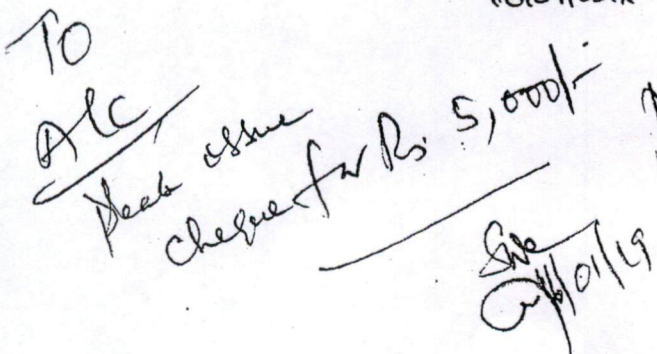 To
A/c
Please issue
cheque for Rs 5,000/-
16/01/19